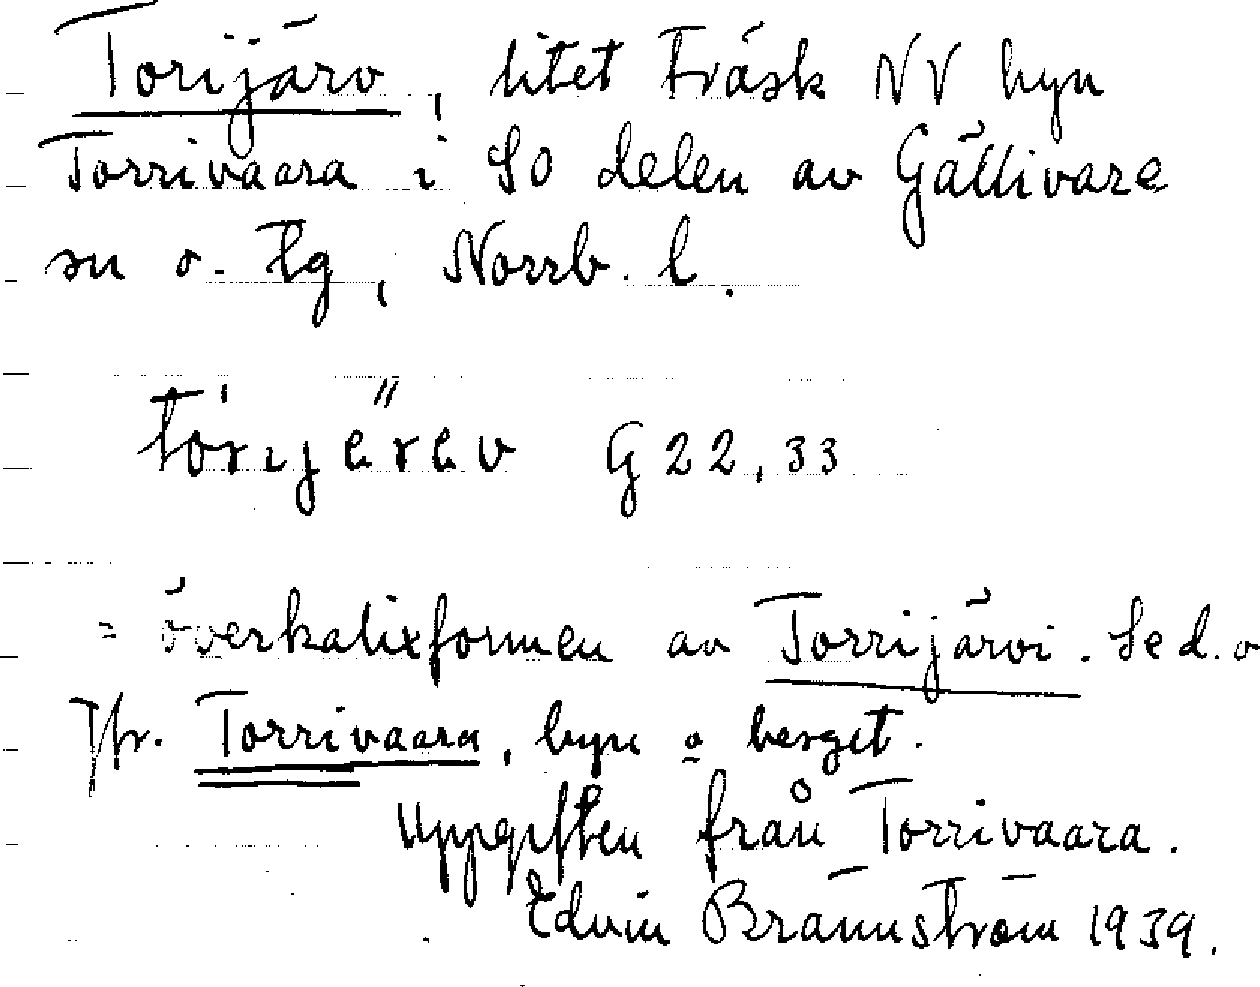 Torijärv, litet träsk NV byn
Torrivaara i SO delen av Gällivare
sn o. tg, Norrb. l.
G 22, 33
= överkalixformen av Torrijärvi. Se d. o
Jfr. Torrivaara, byn o berget.
Uppgiften från Torrivaara.
Edvin Brännström 1939.